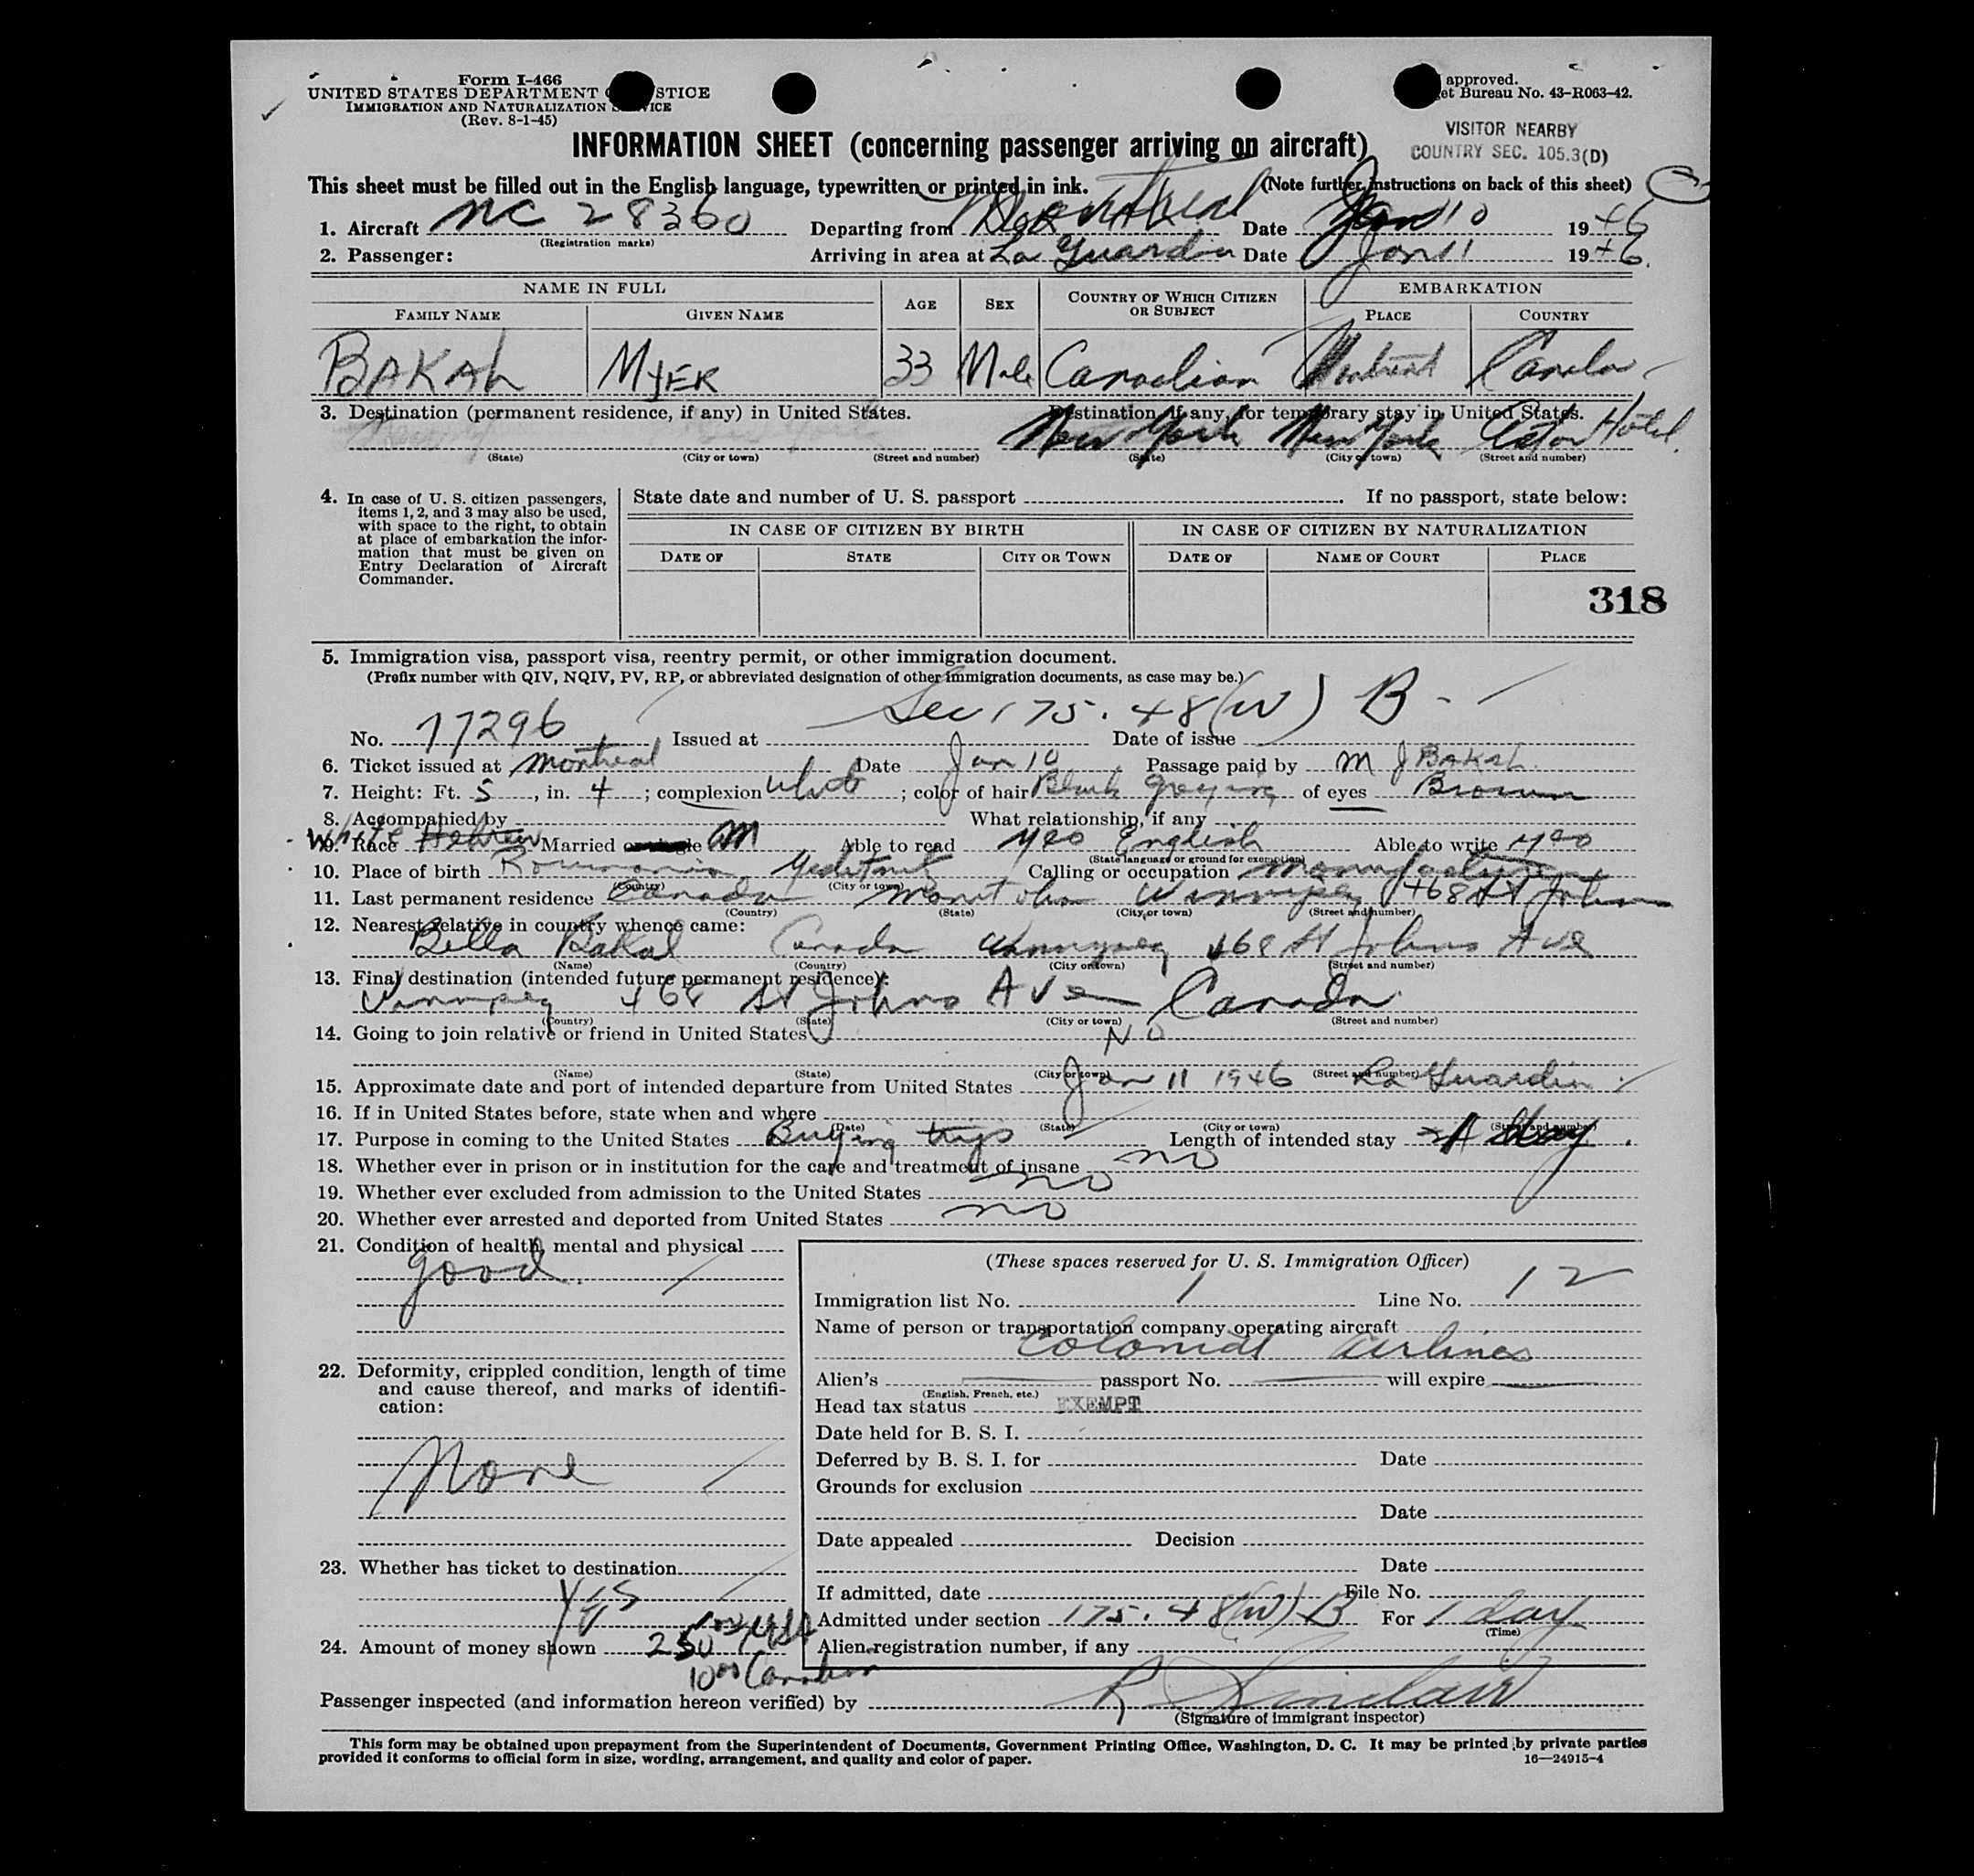 Form I-466
UNITED STATES DEPARTMENT STICE
IMMIGRATION AND NATURALIZATION VICE
(Rev. 8-1-45)
approved.
et Bureau No. 43-R063-42.
VISITOR NEARBY
COUNTRY SEC. 105.3(D)
INFORMATION SHEET (concerning passenger arriving on aircraft)
This sheet must be filled out in the English language, typewritten or printed in ink. (Note further instructions on back of this sheet)
1. Aircraft NC 28360 Departing from Montreal Date Jan 10 1946
(Registration marks)
2. Passenger: Arriving in area at La Guardia Date Jan 11 1946.
NAME IN FULL AGE SEX COUNTRY OF WHICH CITIZEN OR SUBJECT EMBARKATION
FAMILY NAME GIVEN NAME PLACE COUNTRY
BAKAL MYER 33 Male Canadian Montreal Canada
3. Destination (permanent residence, if any) in United States. Destination, if any, for temporary stay in United States.
New York New York Astor Hotel
(State) (City or town) (Street and number) (State) (City or town) (Street and number)
4. In case of U. S. citizen passengers, items 1, 2, and 3 may also be used, with space to the right, to obtain at place of embarkation the information that must be given on Entry Declaration of Aircraft Commander.
State date and number of U. S. passport . If no passport, state below:
IN CASE OF CITIZEN BY BIRTH IN CASE OF CITIZEN BY NATURALIZATION
DATE OF STATE CITY OR TOWN DATE OF NAME OF COURT PLACE
318
5. Immigration visa, passport visa, reentry permit, or other immigration document.
(Prefix number with QIV, NQIV, PV, RP, or abbreviated designation of other immigration documents, as case may be.)
Sec 175.48(W) B -
No. 17296 Issued at Date of issue
6. Ticket issued at Montreal Date Jan 10 Passage paid by M J BAKAL
7. Height: Ft. 5, in. 4; complexion White; color of hair Black Greying of eyes Brown
8. Accompanied by What relationship, if any
9. Race White Hebrew Married or single M Able to read yes English Able to write yes
(State language or ground for exemption)
10. Place of birth Roumania Calling or occupation
(Country) (City or town)
11. Last permanent residence Canada Manitoba Winnipeg 468 St Johns
(Country) (State) (City or town) (Street and number)
12. Nearest relative in country whence came:
Bella Bakal Canada Winnipeg 468 St Johns Ave
(Name) (Country) (City or town) (Street and number)
13. Final destination (intended future permanent residence):
Winnipeg 468 St Johns Ave Canada
(Country) (State) (City or town) (Street and number)
14. Going to join relative or friend in United States NO
(Name) (State) (City or town) (Street and number)
15. Approximate date and port of intended departure from United States Jan 11 1946 La Guardia
16. If in United States before, state when and where
(Date) (State) (City or town) (Street and number)
17. Purpose in coming to the United States Buying trip Length of intended stay day.
18. Whether ever in prison or in institution for the care and treatment of insane no
19. Whether ever excluded from admission to the United States no
20. Whether ever arrested and deported from United States no
21. Condition of health, mental and physical
good.
22. Deformity, crippled condition, length of time and cause thereof, and marks of identification:
None
23. Whether has ticket to destination
Yes
24. Amount of money shown 250
10 00 Canadian
(These spaces reserved for U. S. Immigration Officer)
Immigration list No. 1 Line No. 12
Name of person or transportation company operating aircraft
Colonial Airlines
Alien's passport No. will expire
(English, French, etc.)
Head tax status EXEMPT
Date held for B. S. I.
Deferred by B. S. I. for Date
Grounds for exclusion
Date
Date appealed Decision
Date
If admitted, date File No.
Admitted under section 175.48(W) B For 1 day
(Time)
Alien registration number, if any
Passenger inspected (and information hereon verified) by R Sinclair
(Signature of immigrant inspector)
This form may be obtained upon prepayment from the Superintendent of Documents, Government Printing Office, Washington, D. C. It may be printed by private parties
provided it conforms to official form in size, wording, arrangement, and quality and color of paper. 16—24915-4